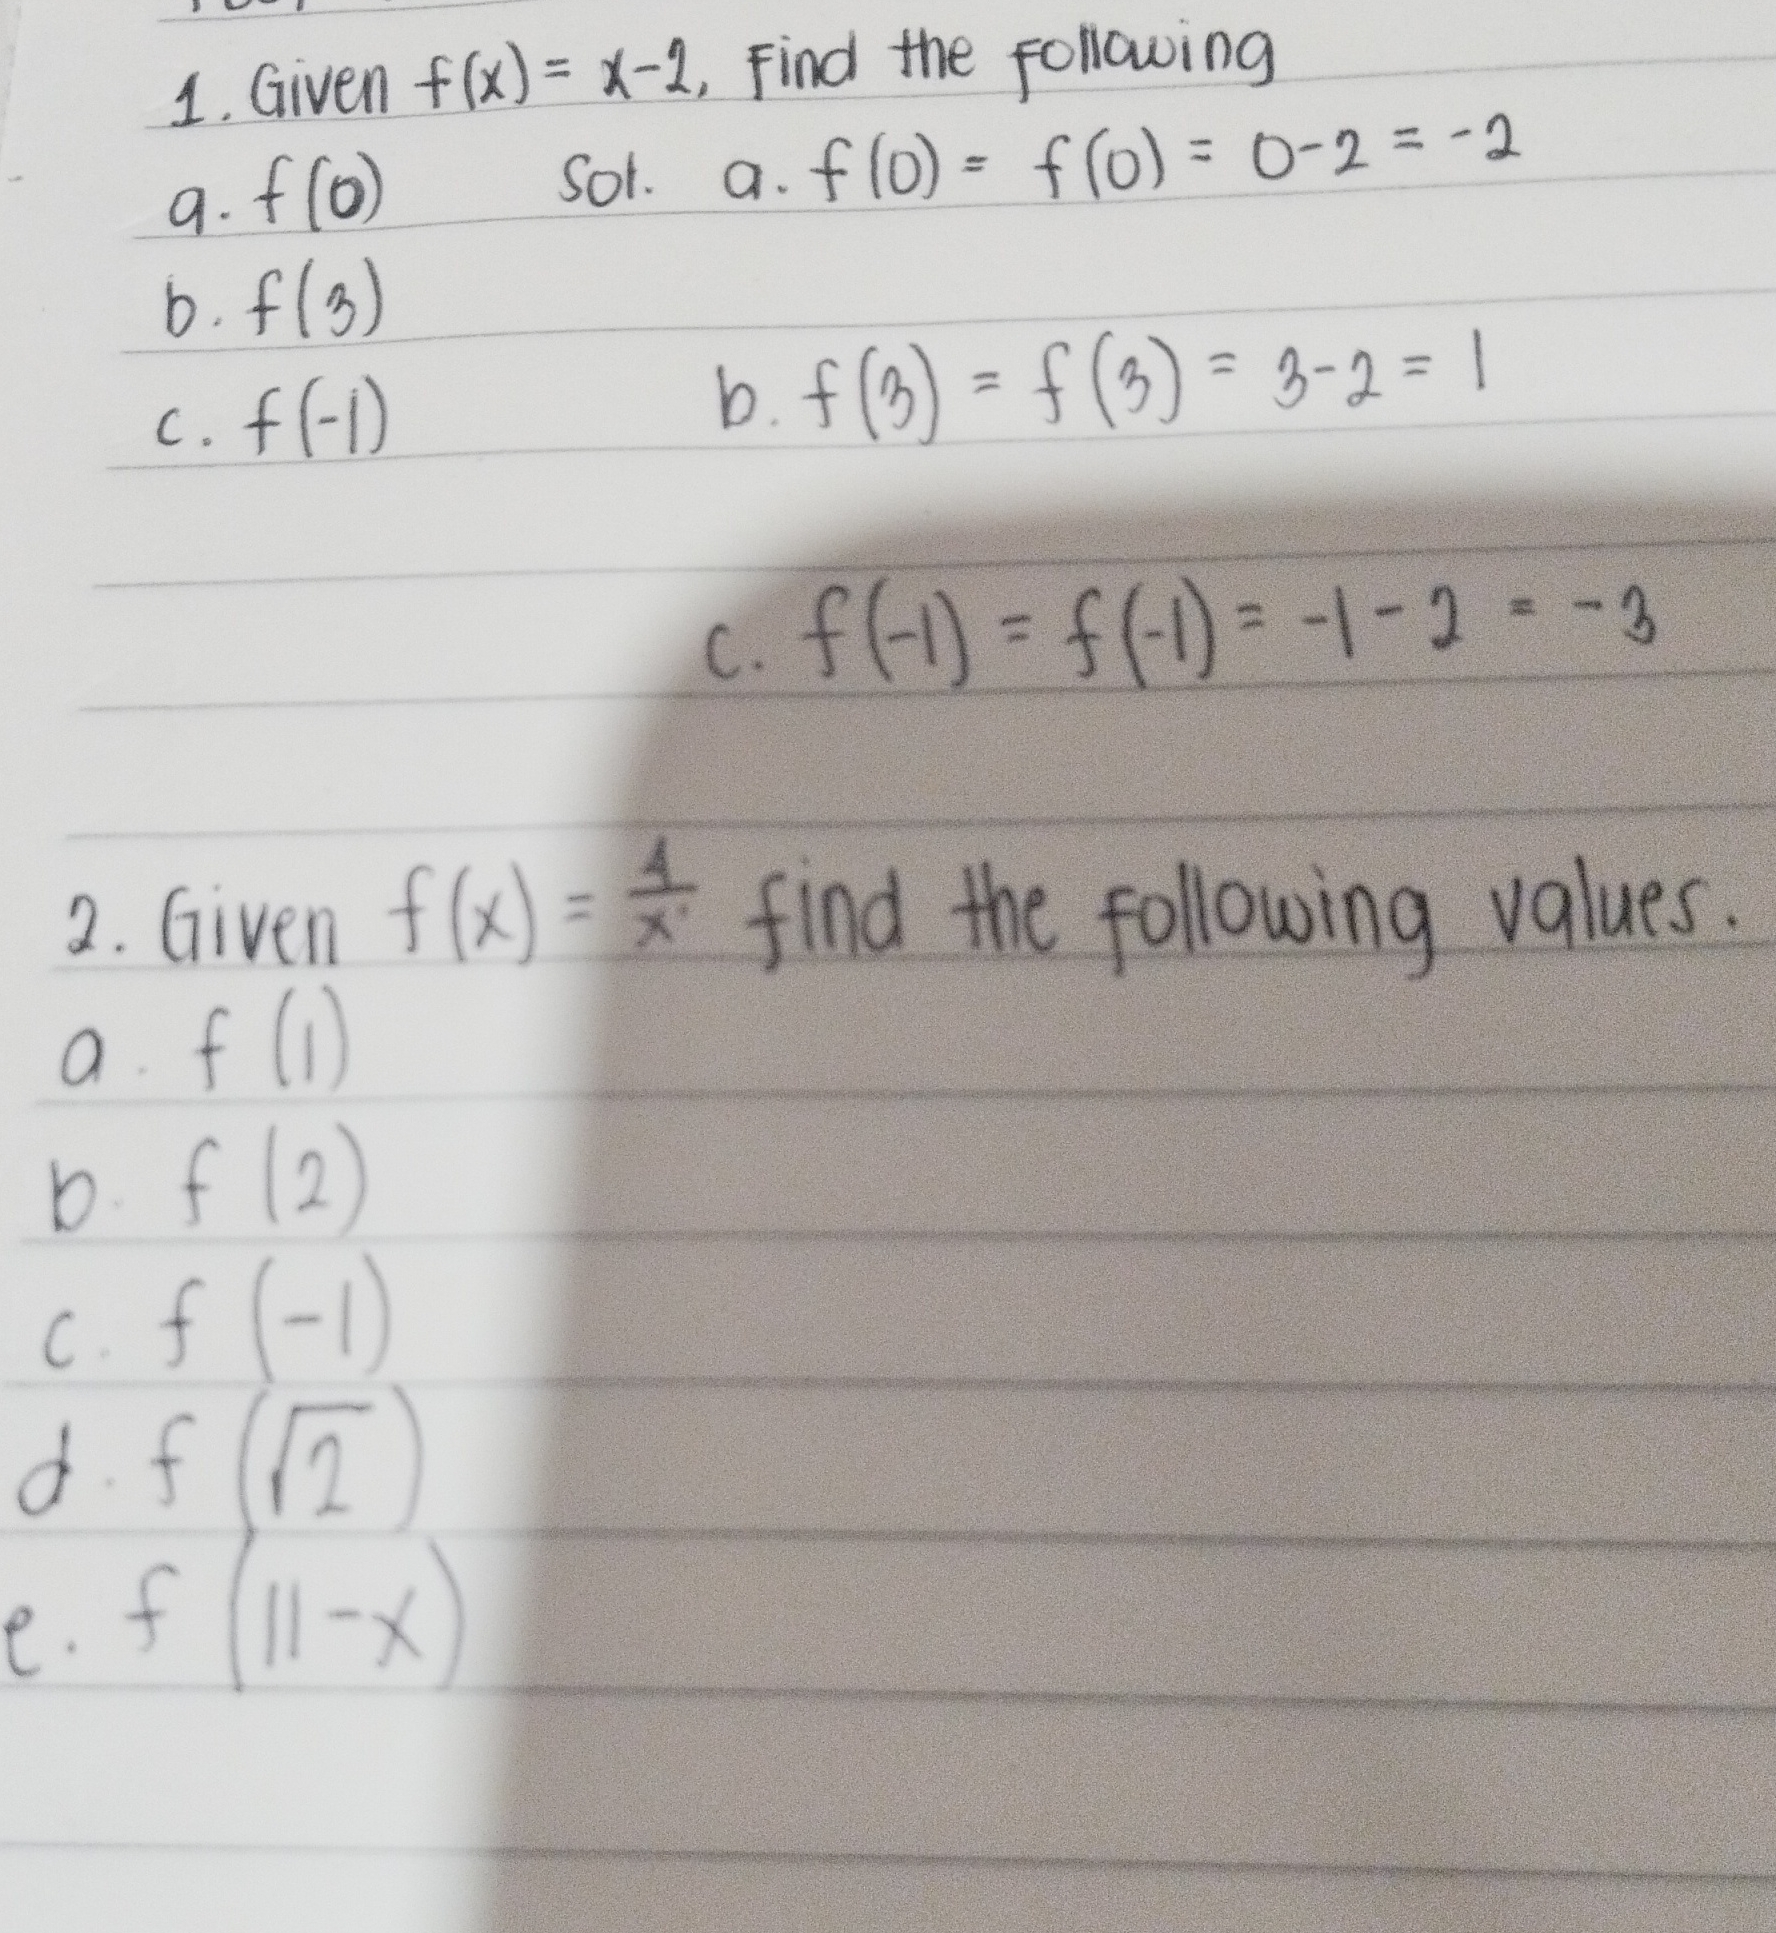 1. Given f(x) = x-2, Find the following
a. f(0) Sol. a. f(0) = f(0) = 0-2 = -2
b. f(3)
b. f(3) = f(3) = 3-2 = 1
c. f(-1)
c. f(-1) = f(-1) = -1-2 = -3
2. Given f(x) = 1/x, find the following values.
a. f(1)
b. f(2)
c. f(-1)
d. f(√2)
e. f(11-x)